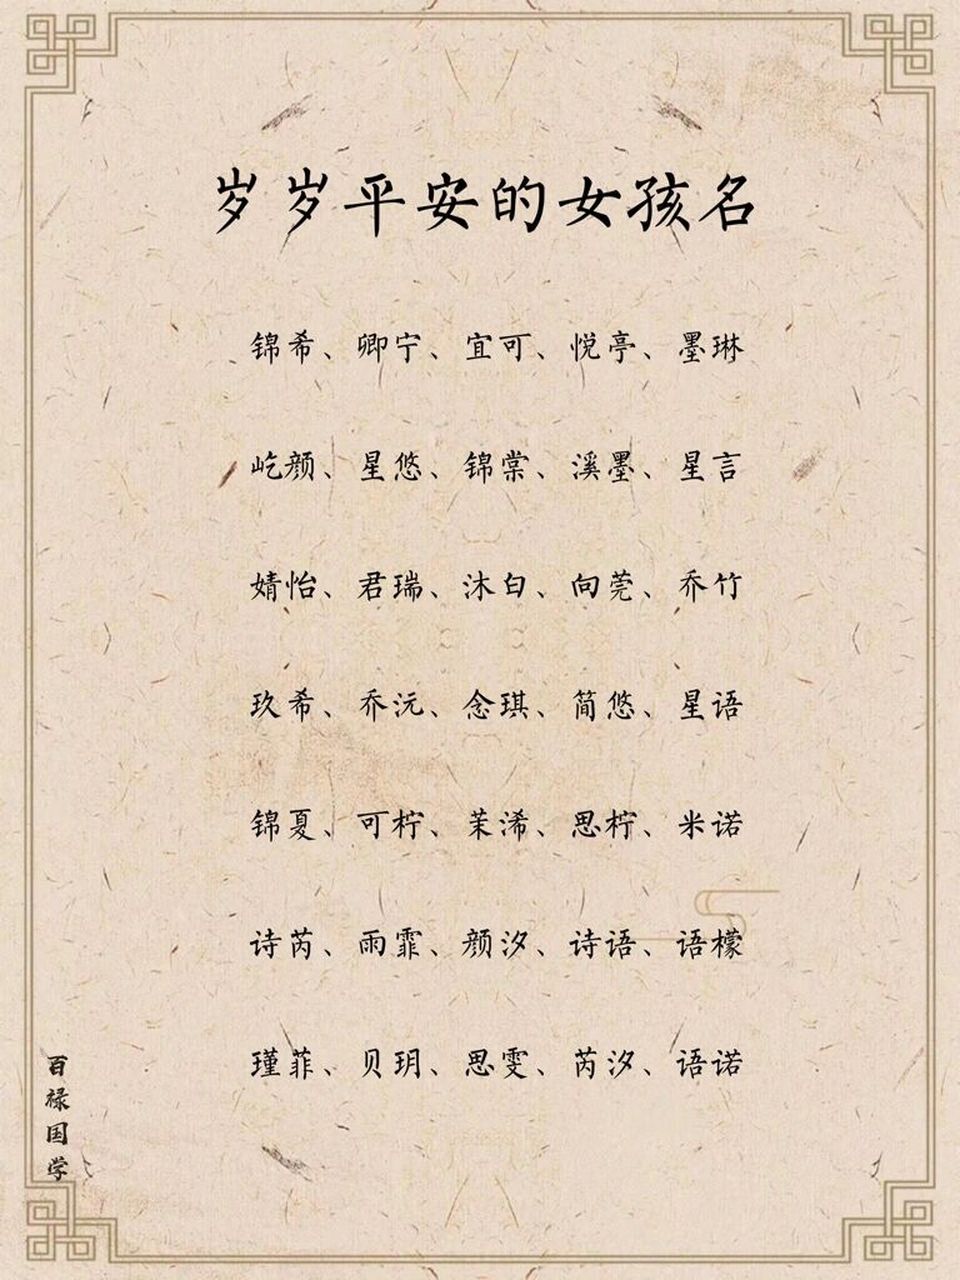 岁岁平安的女孩名
锦希、卿宁、宜可、悦亭、墨琳
屹颜、星悠、锦棠、溪墨、星言
婧怡、君瑞、沐白、向莞、乔竹
玖希、乔沅、念琪、简悠、星语
锦夏、可柠、茉浠、思柠、米诺
诗芮、雨霏、颜汐、诗语、语檬
瑾菲、贝玥、思雯、芮汐、语诺
百禄国学